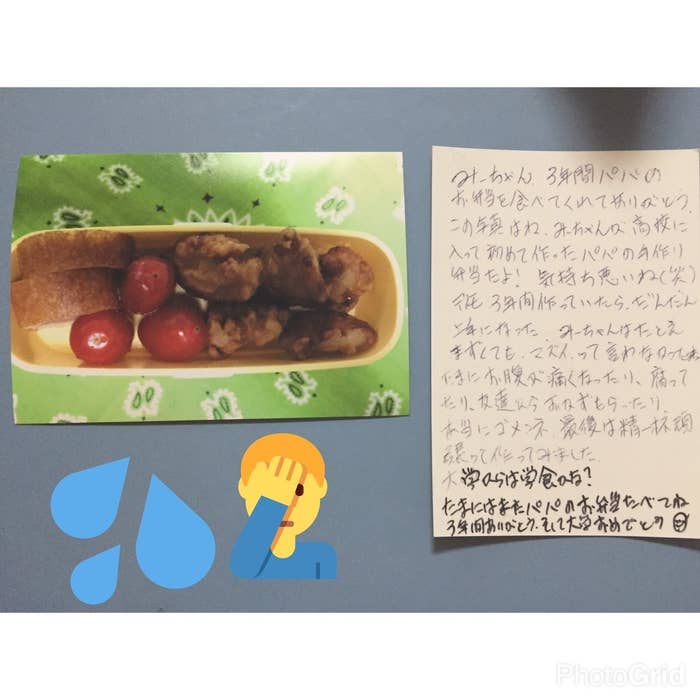 みーちゃん、3年間パパの
お弁当を食べてくれてありがとう
この写真はね、みーちゃんが高校に
入って初めて作ったパパの手作り
弁当だよ! 気持ち悪いね(笑)
でも3年間作っていたら、だんだん
上手になった みーちゃんはたとえ
まずくても、マズイって言わなかったね
たまにお腹が痛くなったり、腐って
たり、友達からおかずもらったり、
本当にゴメンネ 最後は精一杯頑
張って作ってみました。
大学からは学食かな?
たまにはまたパパのお弁当たべてね
3年間ありがとう、そして大学おめでとう
PhotoGrid